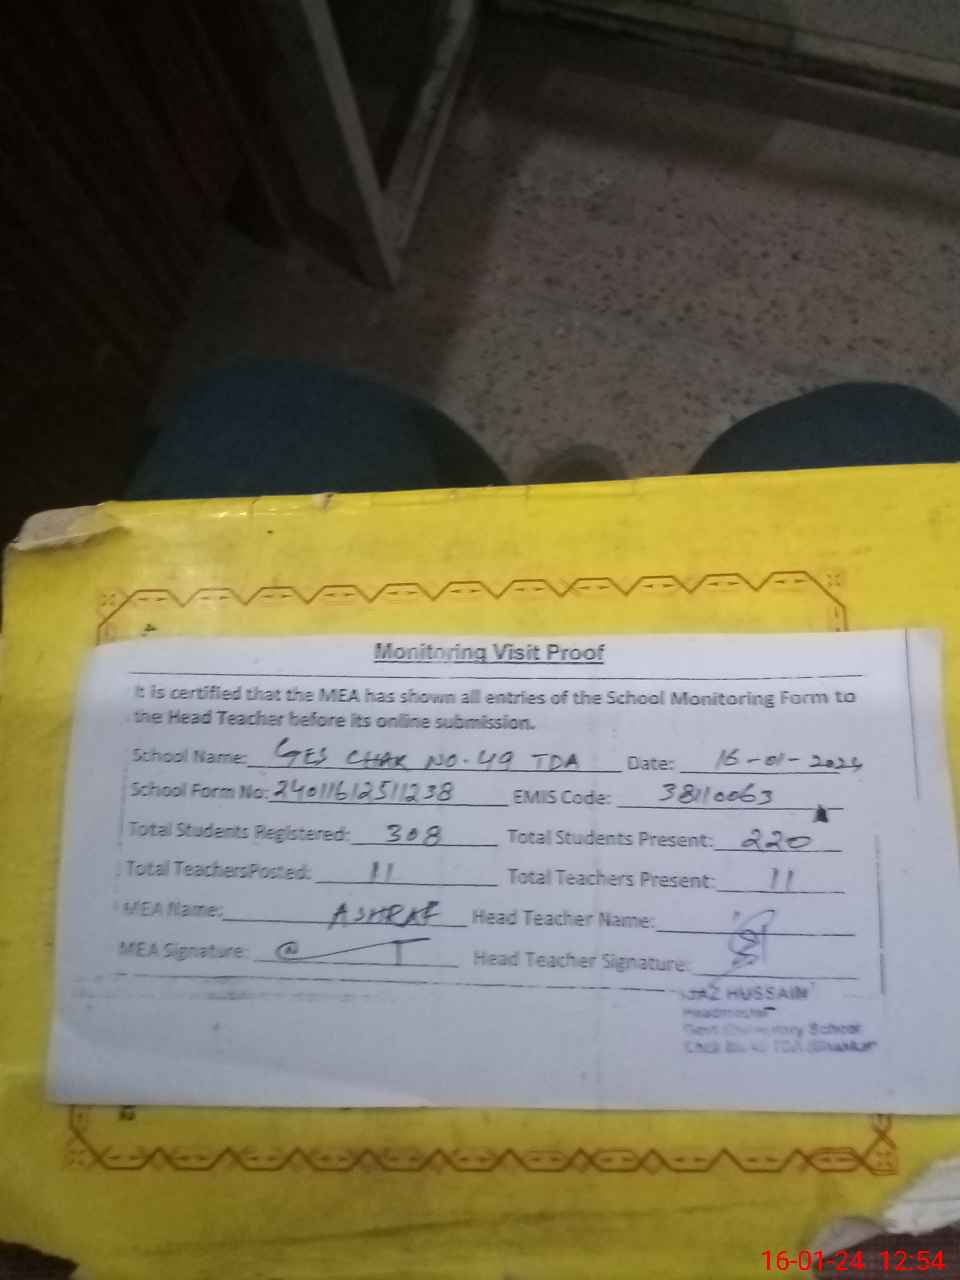 Monitoring Visit Proof
It is certified that the MEA has shown all entries of the School Monitoring Form to
the Head Teacher before its online submission.
School Name: GES CHAK NO. 49 TDA Date: 16-01-2024
School Form No: 24011612511238 EMIS Code: 38110063
Total Students Registered: 308 Total Students Present: 220
Total TeachersPosted: 11 Total Teachers Present: 11
MEA Name: ASHRAF Head Teacher Name:
MEA Signature: Head Teacher Signature:
HUSSAIN
Headmaster
School
TDA
16-01-24 12:54